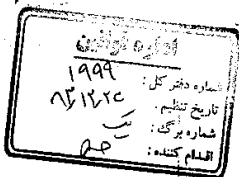 اداره قوانین
شماره دفتر کل : ۱۹۹۹
تاریخ تنظیم : ۸۳/۱۲/۲۴
شماره برگ : یک
اقدام کننده :